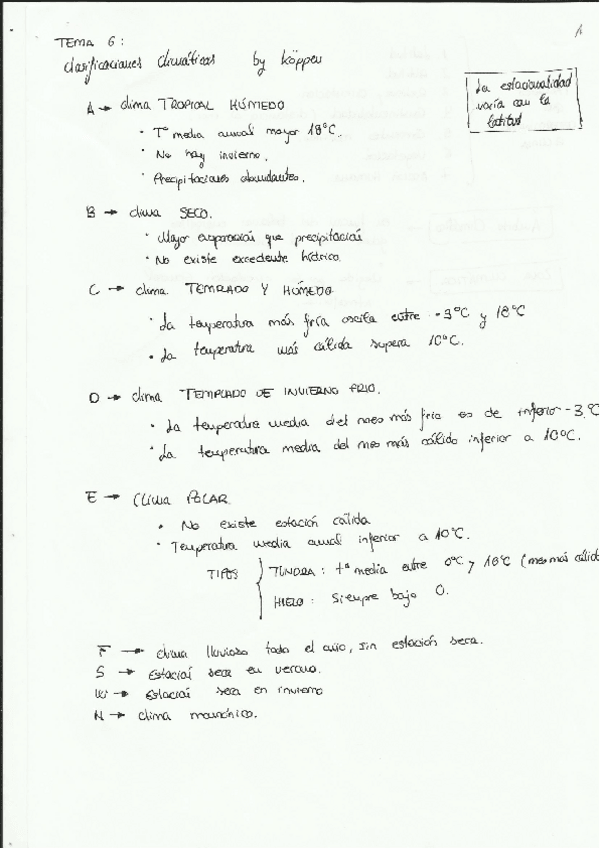 TEMA 6:
clasificaciones climáticas by köppen
La estacionalidad
varía con la
latitud
A → clima TROPICAL HÚMEDO
· Tª media anual mayor 18ºC.
· No hay invierno.
· Precipitaciones abundantes.
B → clima SECO.
· Mayor evaporación que precipitación
· No existe excedente hídrico
C → clima TEMPLADO Y HÚMEDO
· La temperatura más fría oscila entre -3ºC y 18ºC
· La temperatura más cálida supera 10ºC.
D → clima TEMPLADO DE INVIERNO FRIO.
· La temperatura media del mes más fria es de inferior -3ºC
· La temperatura media del mes más cálido inferior a 10ºC.
E → Clima POLAR
· No existe estación cálida
· Temperatura media anual inferior a 10ºC.
TIPOS
TUNDRA: tª media entre 0ºC y 10ºC (mes más cálido
HIELO: Siempre bajo 0.
F → clima lluvioso todo el año, sin estación seca.
S → Estación seca en verano.
W → Estación seca en invierno
N → clima monzónico.